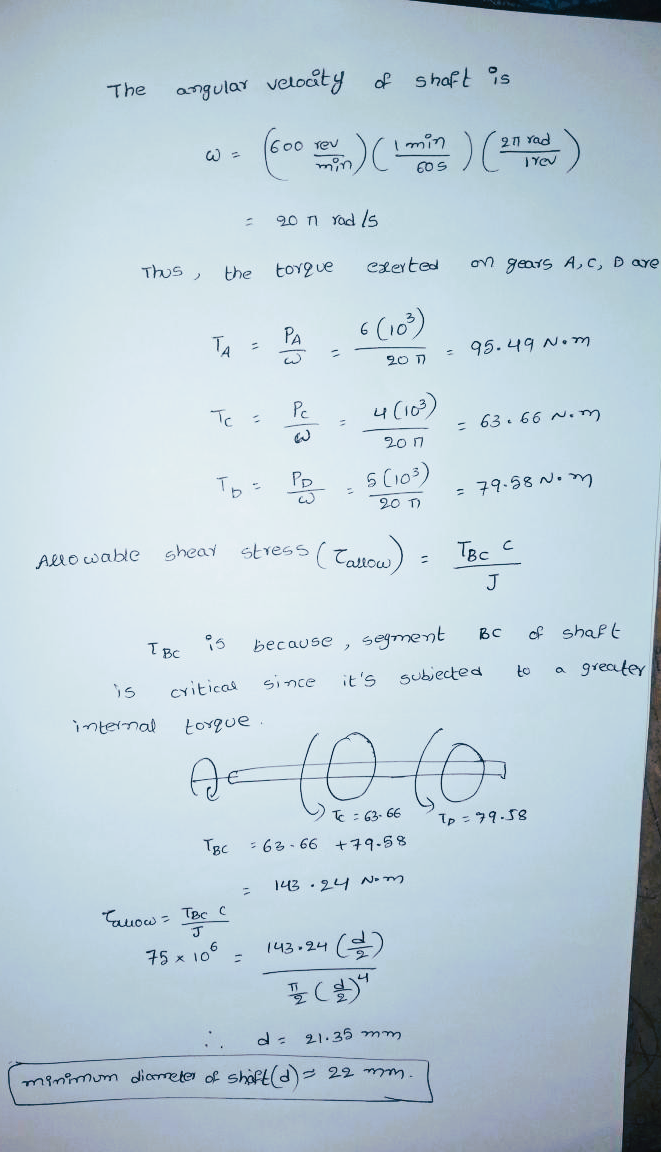 The angular velocity of shaft is
ω = (600 rev/min) (1 min/60 s) (2π rad/1 rev)
= 20 π rad/s
Thus, the torque exerted on gears A, C, D are
T_A = P_A/ω = 6(10³)/20 π = 95.49 N.m
T_C = P_C/ω = 4(10³)/20 π = 63.66 N.m
T_D = P_D/ω = 5(10³)/20 π = 79.58 N.m
Allowable shear stress (τ_allow) = T_BC c/J
T_BC is because, segment BC of shaft
is critical since it's subjected to a greater
internal torque.
T_C = 63.66 T_D = 79.58
T_BC = 63.66 + 79.58
= 143.24 N.m
τ_allow = T_BC c/J
75 × 10⁶ = 143.24 (d/2) / π/2 (d/2)⁴
∴ d = 21.35 mm
minimum diameter of shaft (d) = 22 mm.